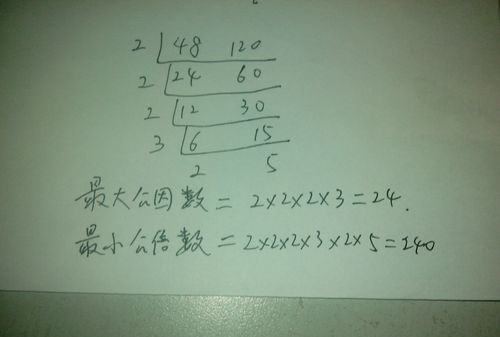 2 48 120
2 24 60
2 12 30
3 6 15
2 5
最大公因数 = 2×2×2×3=24.
最小公倍数 = 2×2×2×3×2×5=240